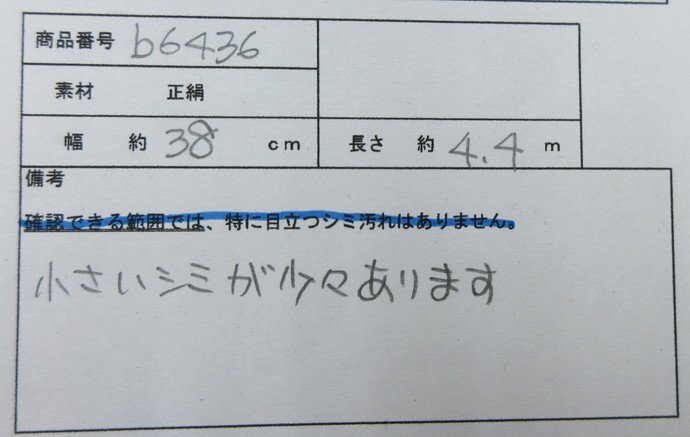 商品番号 b6436
素材 正絹
幅 約 38 cm 長さ 約 4.4 m
備考
確認できる範囲では、特に目立つシミ汚れはありません。
小さいシミが少々あります